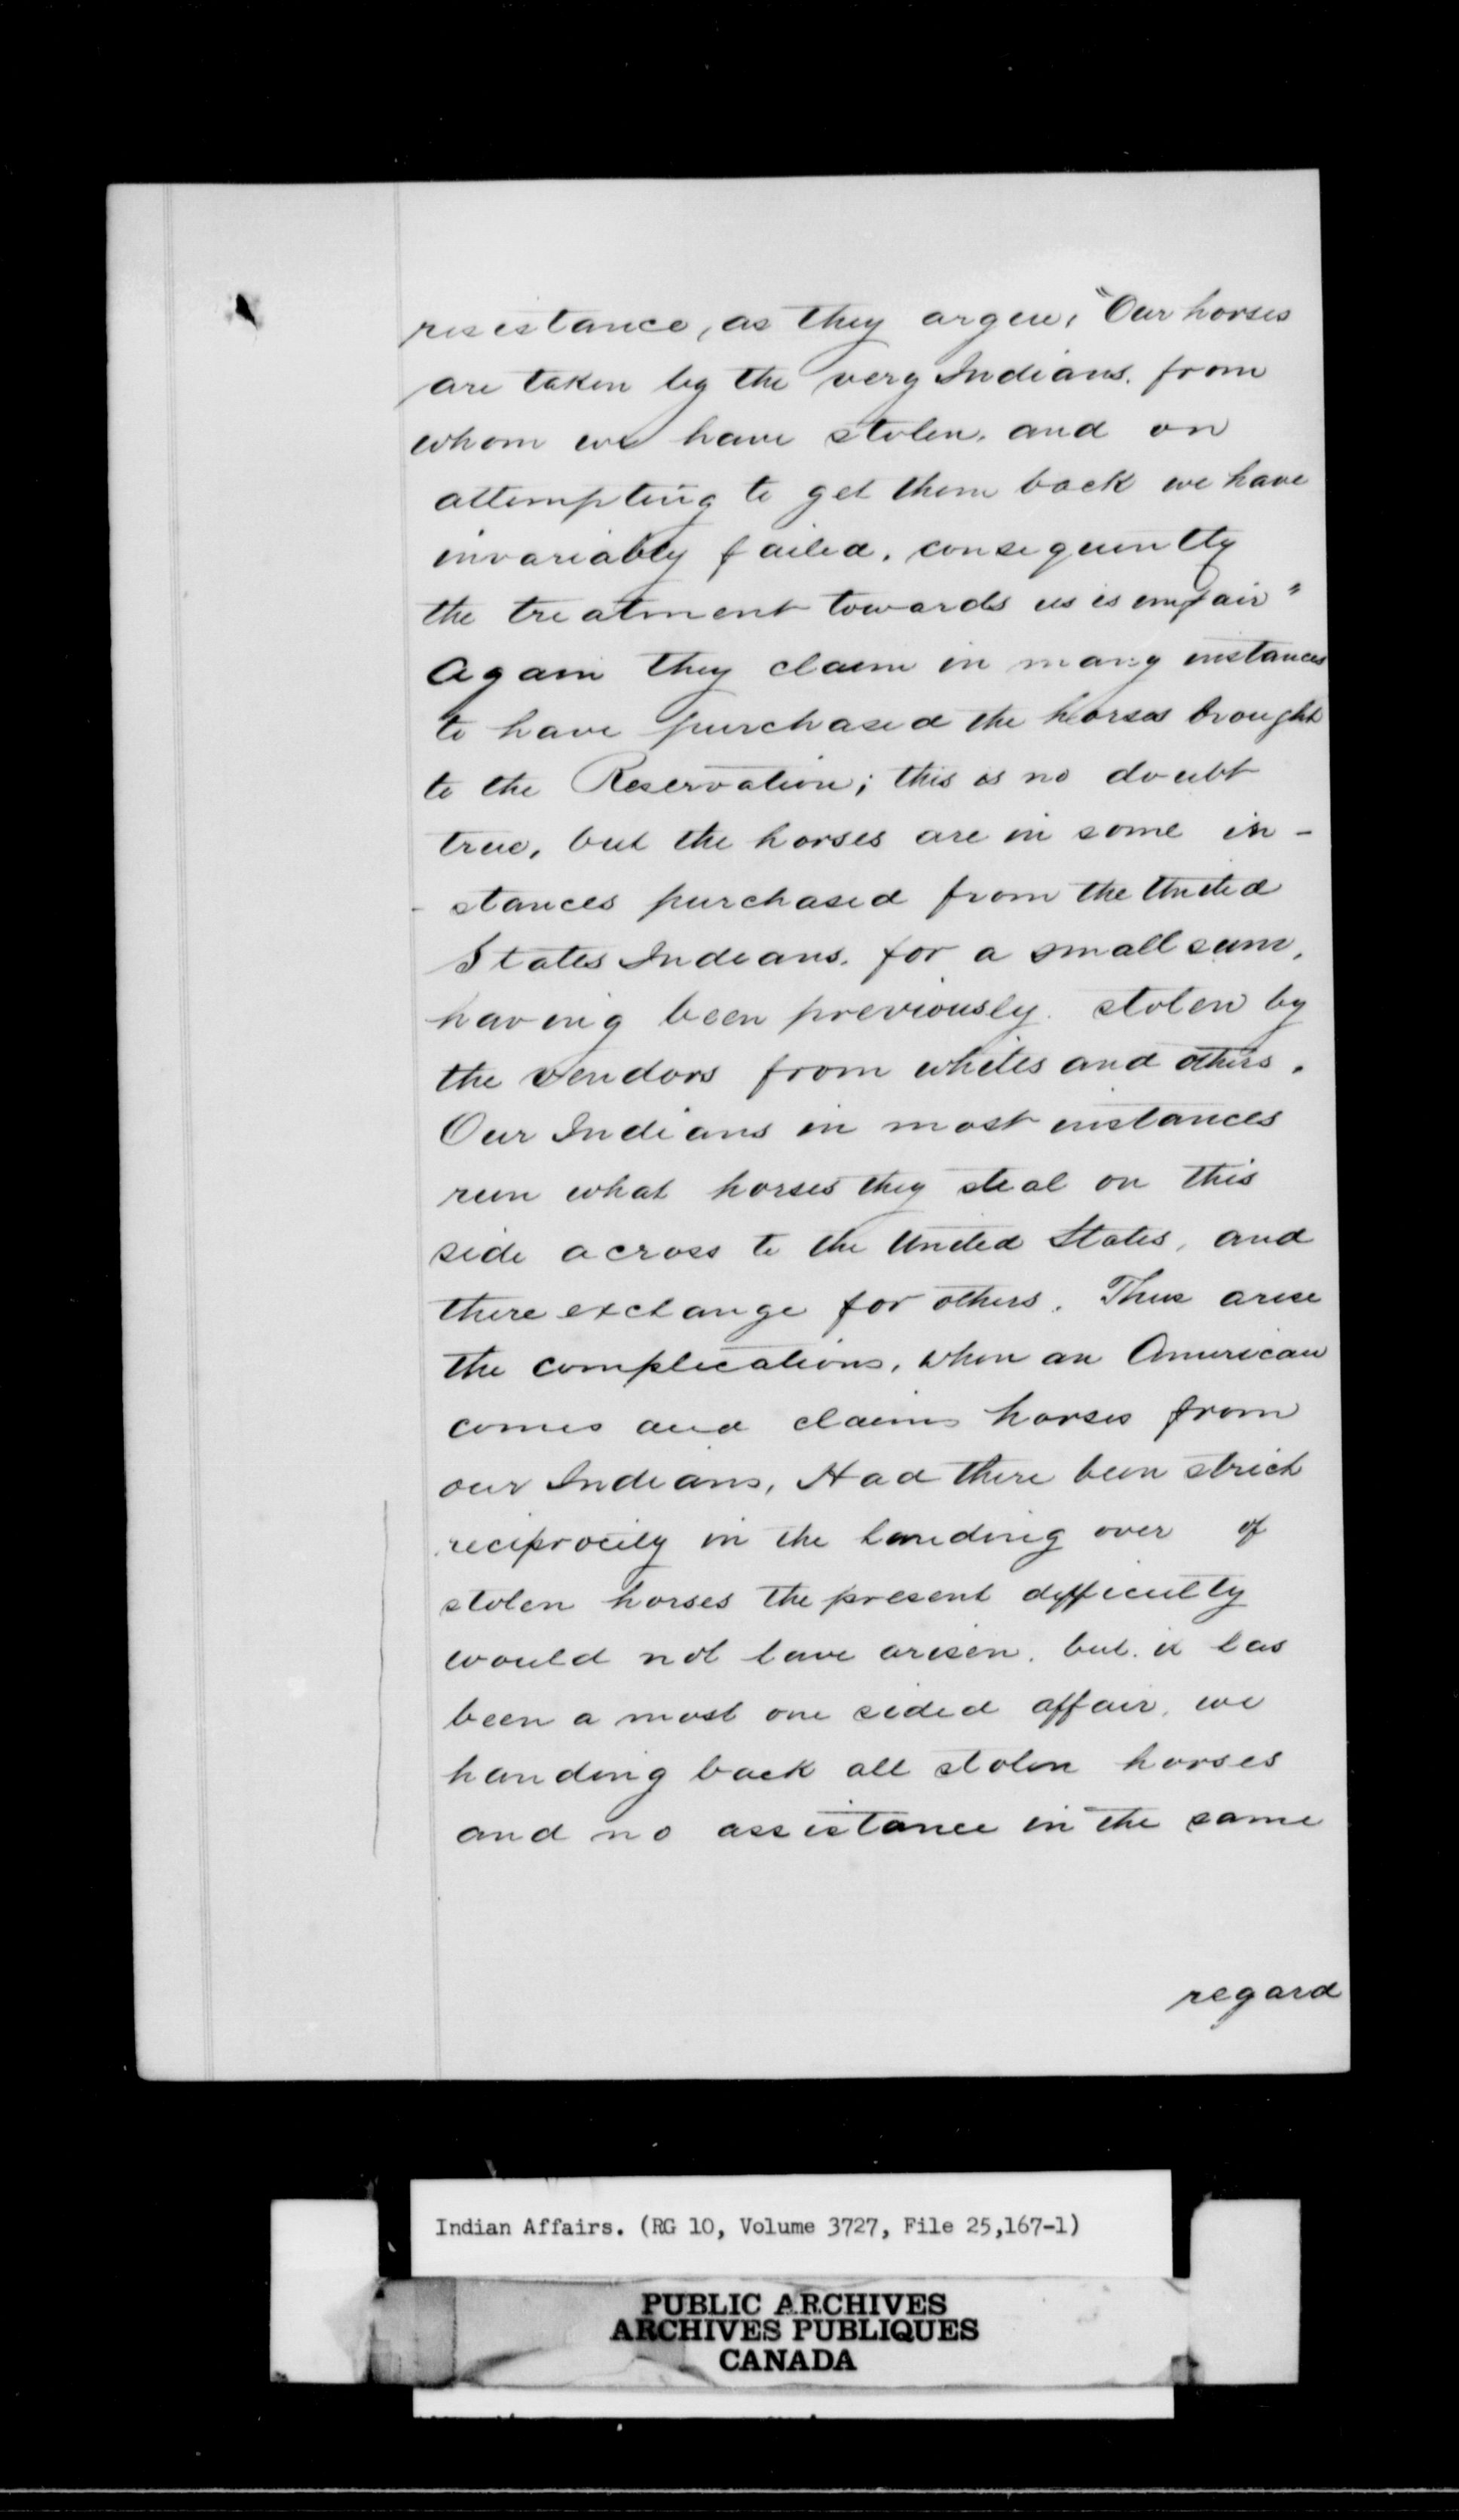 resistance, as they argue, "Our horses
are taken by the very Indians, from
whom we have stolen, and on
attempting to get them back we have
invariably failed, consequently
the treatment towards us is unfair"
Again they claim in many instances
to have purchased the horses brought
to the Reservation; this is no doubt
true, but the horses are in some in-
-stances purchased from the United
States Indians, for a small sum,
having been previously stolen by
the vendors from whites and others.
Our Indians in most instances
run what horses they steal on this
side across to the United States, and
there exchange for others. Thus arise
the complications, when an American
comes and claims horses from
our Indians, Had there been strict
reciprocity in the handing over of
stolen horses the present difficulty
would not have arisen, but it has
been a most one sided affair, we
handing back all stolen horses
and no assistance in the same
regard
Indian Affairs. (RG 10, Volume 3727, File 25,167-1)
PUBLIC ARCHIVES
ARCHIVES PUBLIQUES
CANADA